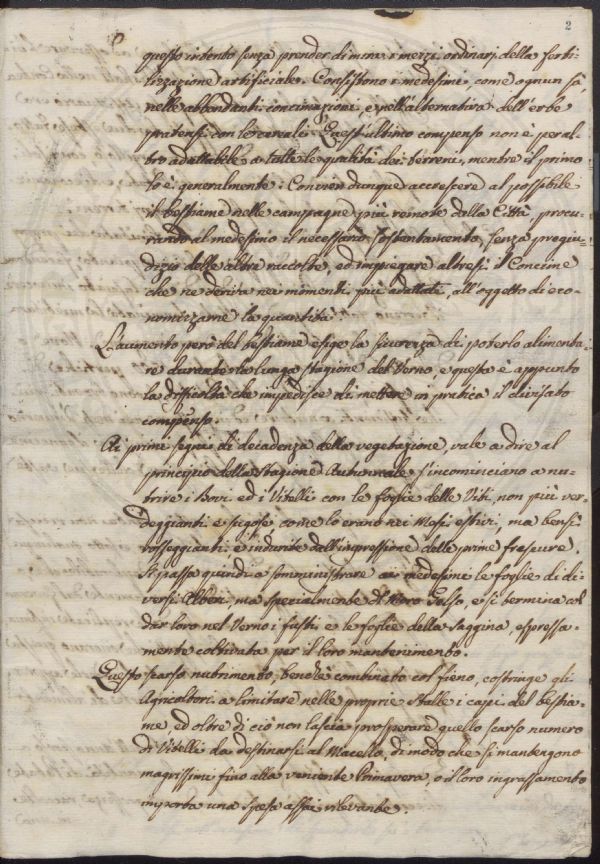 2
questo intento senza prender di mira i mezzi ordinarj della ferti-
lizzazione artificiale. Consistono i medesimi, come ognun sà,
nelle abbondanti concimazioni, e nell'alternativa dell'erbe
pratensi con le cereale. Quest'ultimo compenso non è peral-
tro adattabile a tutte le qualità dei terreni, mentre il primo
lo è generalmente: Convien dunque accrescere al possibile
il bestiame nelle campagne più remote della Città, procu-
rando al medesimo il necessario sostentamento, senza pregiu-
dizio delle altre raccolte, ed impiegare altresì il Concime
che ne deriva nei momenti più adattati, all'oggetto di eco-
nomizzarne la quantità.
L'aumento però del bestiame esige la sicurezza di poterlo alimenta-
re durante la lunga stagione del Verno, e questo è appunto
la difficoltà che impedisce di mettere in pratica il divisato
compenso.
Ai primi segni di decadenza della vegetazione, vale a dire al
principio della Stagione Autunnale, s'incominciano a nu-
trire i Bovi ed i Vitelli con le foglie delle Viti, non più ver-
deggianti e sugose come lo erano nei Mesi estivi, ma bensì
rosseggianti e indurite dall'impressione delle prime frescure.
Si passa quindi a somministrare ai medesimi le foglie di di-
versi Alberi, ma specialmente di Moro Gelso, e si termina col
dar loro nel Verno i fusti e le foglie della Saggina, espressa-
mente coltivata per il loro mantenimento.
Questo scarso nutrimento, benchè combinato col fieno, costringe gli
Agricoltori a limitare nelle proprie Stalle i capi del bestia-
me, ed oltre di ciò non lascia prosperare quello scarso numero
di Vitelli da destinarsi al Macello, di modo che si mantengono
magrissimi fino alla veniente Primavera, o il loro ingrassamento
importa una spesa assai rilevante.